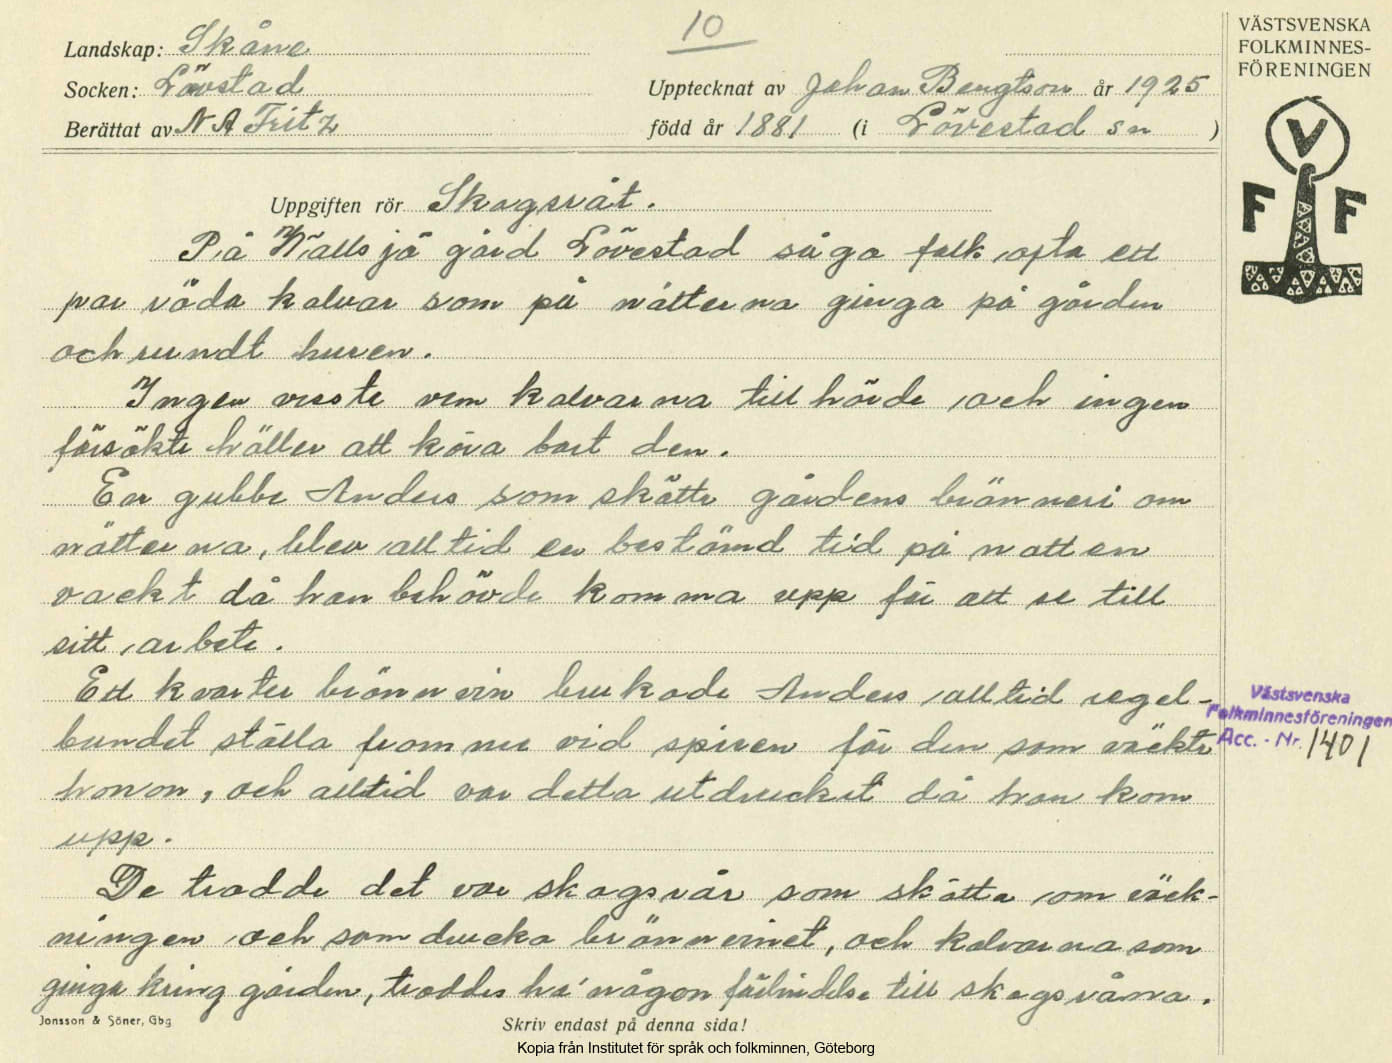 10
Landskap: Skåne
Socken: Lövstad
Berättat av N A Fritz
Upptecknat av Johan Bengtson år 1925
född år 1881 (i Lövestad sn )
VÄSTSVENSKA
FOLKMINNES-
FÖRENINGEN
V
F F
Uppgiften rör Skogsråt.
På Wallsjö gård Lövestad såga folk ofta ett
par röda kalvar som på nätterna ginga på gården
och rundt husen.
Ingen visste vem kalvarna tillhörde och ingen
försökte häller att köra bort den.
En gubbe Anders som skötte gårdens bränneri om
nätterna, blev alltid en bestämd tid på natten
vackt då han behövde komma upp för att se till
sitt arbete.
Ett kvarter brännvin brukade Anders alltid regel-
bundet ställa framme vid spisen för den som väckte
honon, och alltid var detta utdrucket då han kom
upp.
De trodde det var skogsrår som skötte om väck-
ningen och som drucko brännvinet, och kalvarna som
ginga kring gården, troddes ha någon förbindelse till skogsråna.
Västsvenska
Folkminnesföreningen
Acc. - Nr. 1401
Jonsson & Söner, Gbg
Skriv endast på denna sida!
Kopia från Institutet för språk och folkminnen, Göteborg